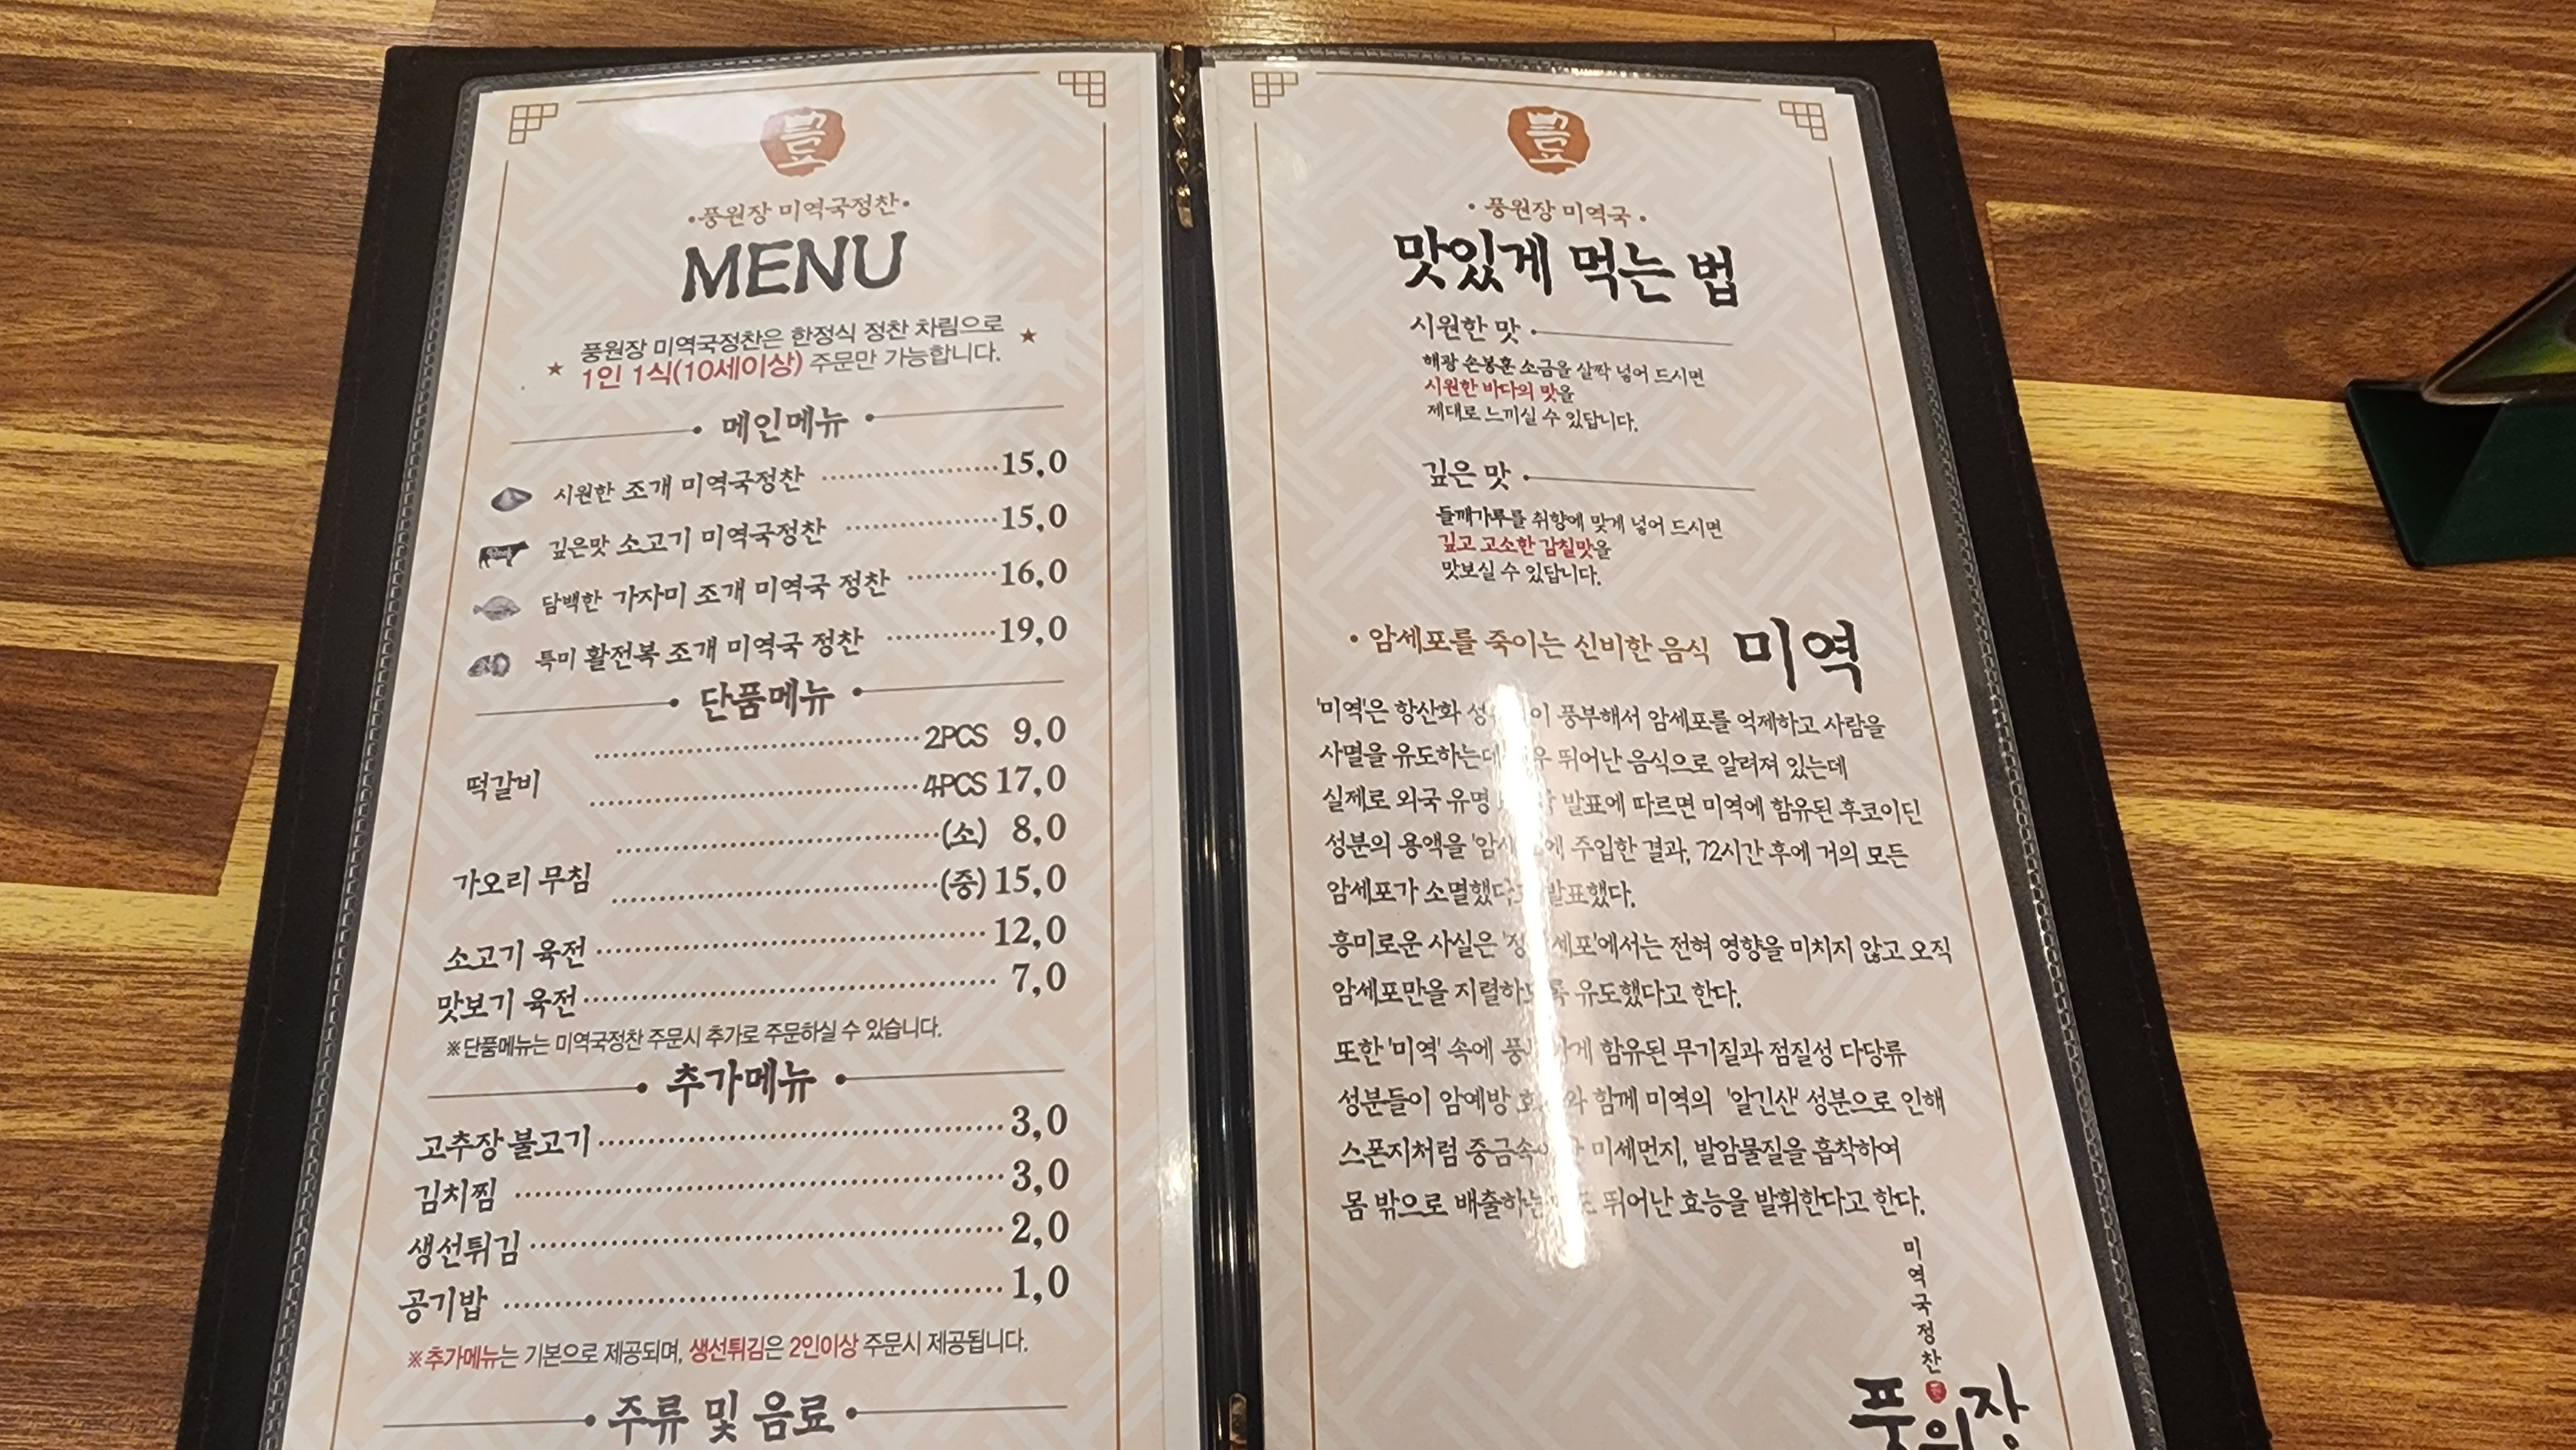 풍
·풍원장 미역국정찬·
MENU
풍원장 미역국정찬은 한정식 정찬 차림으로
1인 1식(10세이상) 주문만 가능합니다.
메인메뉴
시원한 조개 미역국정찬 15,0
깊은맛 소고기 미역국정찬 15,0
담백한 가자미 조개 미역국 정찬 16,0
특미 활전복 조개 미역국 정찬 19,0
단품메뉴
떡갈비 2PCS 9,0
4PCS 17,0
가오리 무침 (소) 8,0
(중) 15,0
소고기 육전 12,0
맛보기 육전 7,0
※단품메뉴는 미역국정찬 주문시 추가로 주문하실 수 있습니다.
추가메뉴
고추장 불고기 3,0
김치찜 3,0
생선튀김 2,0
공기밥 1,0
※추가메뉴는 기본으로 제공되며, 생선튀김은 2인이상 주문시 제공됩니다.
주류 및 음료
풍
· 풍원장 미역국 ·
맛있게 먹는 법
시원한 맛
해광 손봉훈 소금을 살짝 넣어 드시면
시원한 바다의 맛을
제대로 느끼실 수 있답니다.
깊은 맛
들깨가루를 취향에 맞게 넣어 드시면
깊고 고소한 감칠맛을
맛보실 수 있답니다.
· 암세포를 죽이는 신비한 음식 미역
'미역'은 항산화 풍부해서 암세포를 억제하고 사람을
사멸을 유도하는데 뛰어난 음식으로 알려져 있는데
실제로 외국 유명 발표에 따르면 미역에 함유된 후코이딘
성분의 용액을 주입한 결과, 72시간 후에 거의 모든
암세포가 소멸했다고 발표했다.
흥미로운 사실은 '정상세포'에서는 전혀 영향을 미치지 않고 오직
암세포만을 지렬하도록 유도했다고 한다.
또한 '미역' 속에 풍부하게 함유된 무기질과 점질성 다당류
성분들이 암예방 함께 미역의 '알긴산' 성분으로 인해
스폰지처럼 미세먼지, 발암물질을 흡착하여
몸 밖으로 배출하는 뛰어난 효능을 발휘한다고 한다.
미역국정찬
풍원장